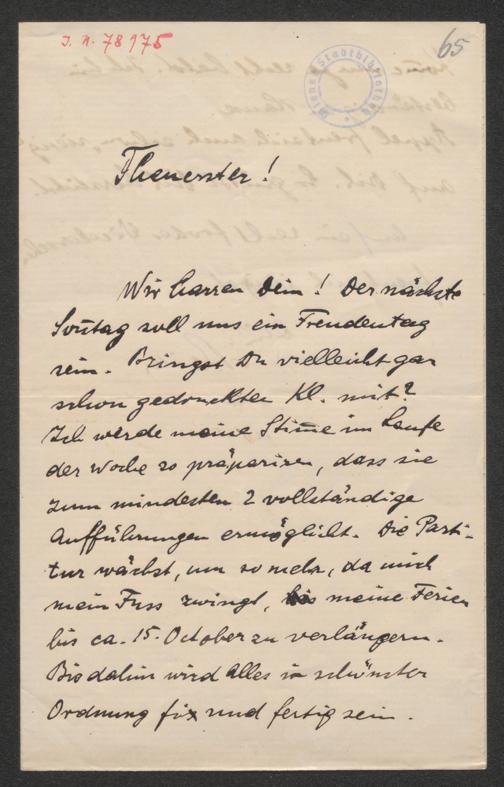 I. N. 78175
65
Wiener Stadtbibliothek
Theuerster!
Wir harren Dein! Der nächste
Soñtag soll uns ein Freudentag
sein. Bringst Du vielleicht gar
schon gedruckten Kl. mit?
Ich werde meine Stim̄e im Laufe
der Woche so präpariren, dass sie
zum mindesten 2 vollständige
Aufführungen ermöglicht. Die Parti-
tur wächst, um so mehr, da mich
mein Fuss zwingt, meine Ferien
bis ca. 15. October zu verlängern.
Bis dahin wird alles in schönster
Ordnung fix und fertig sein.